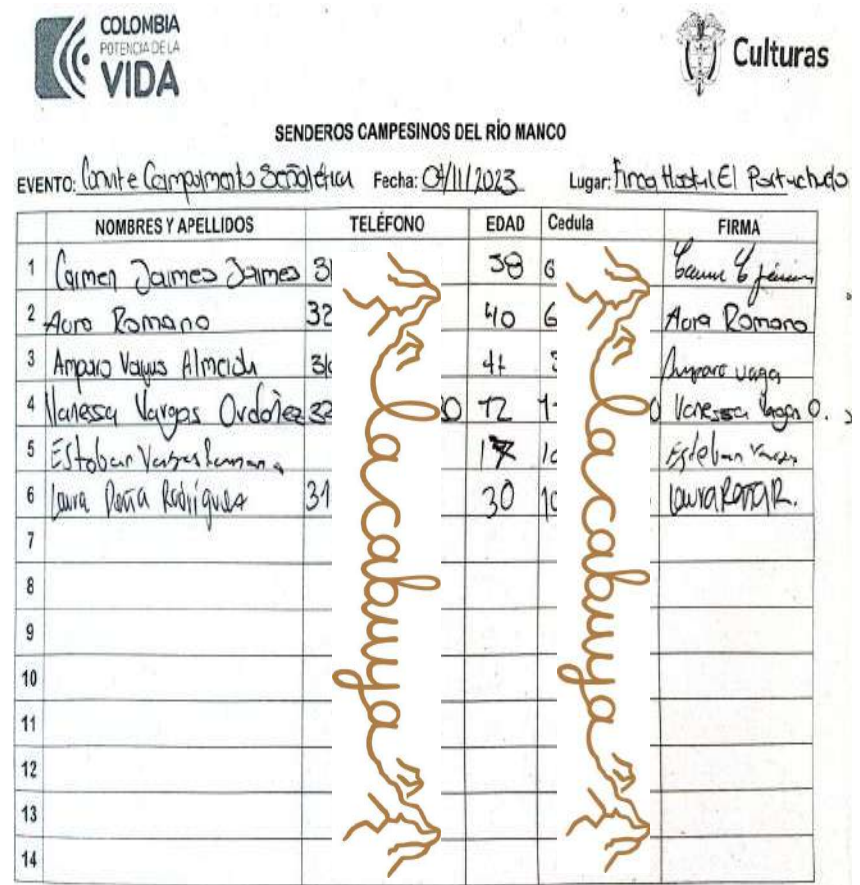 COLOMBIA
POTENCIA DE LA
VIDA
Culturas
SENDEROS CAMPESINOS DEL RÍO MANCO
EVENTO: Convite Campamento Señalética Fecha: 04/11/2023 Lugar: Finca Hostal El Portachuelo
NOMBRES Y APELLIDOS TELÉFONO EDAD Cedula FIRMA
1 Carmen Jaimes Jaimes 31 38 6
2 Aura Romano 32 40 6 Aura Romano
3 Amparo Vargas Almeida 31 Amparo Varga
4 Vanessa Vargas Ordoñez 32 0 12 1 0 Vanessa Vargas O.
5 Esteban Vargas 17 10 Esteban Vargas
6 Laura Peña Rodríguez 31 30 10 Laura Peña R.
7
8
9
10
11
12
13
14
lacabuya
lacabuya